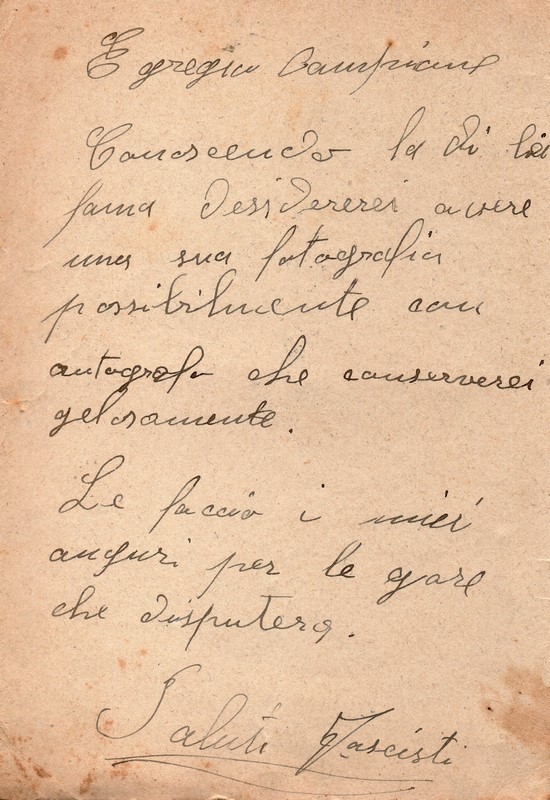 Egregio Campione
Conoscendo la di lei
fama desidererei avere
una sua fotografia
possibilmente con
autografo che conserverei
gelosamente.
Le faccio i miei
auguri per le gare
che disputerà.
Saluti Fascisti